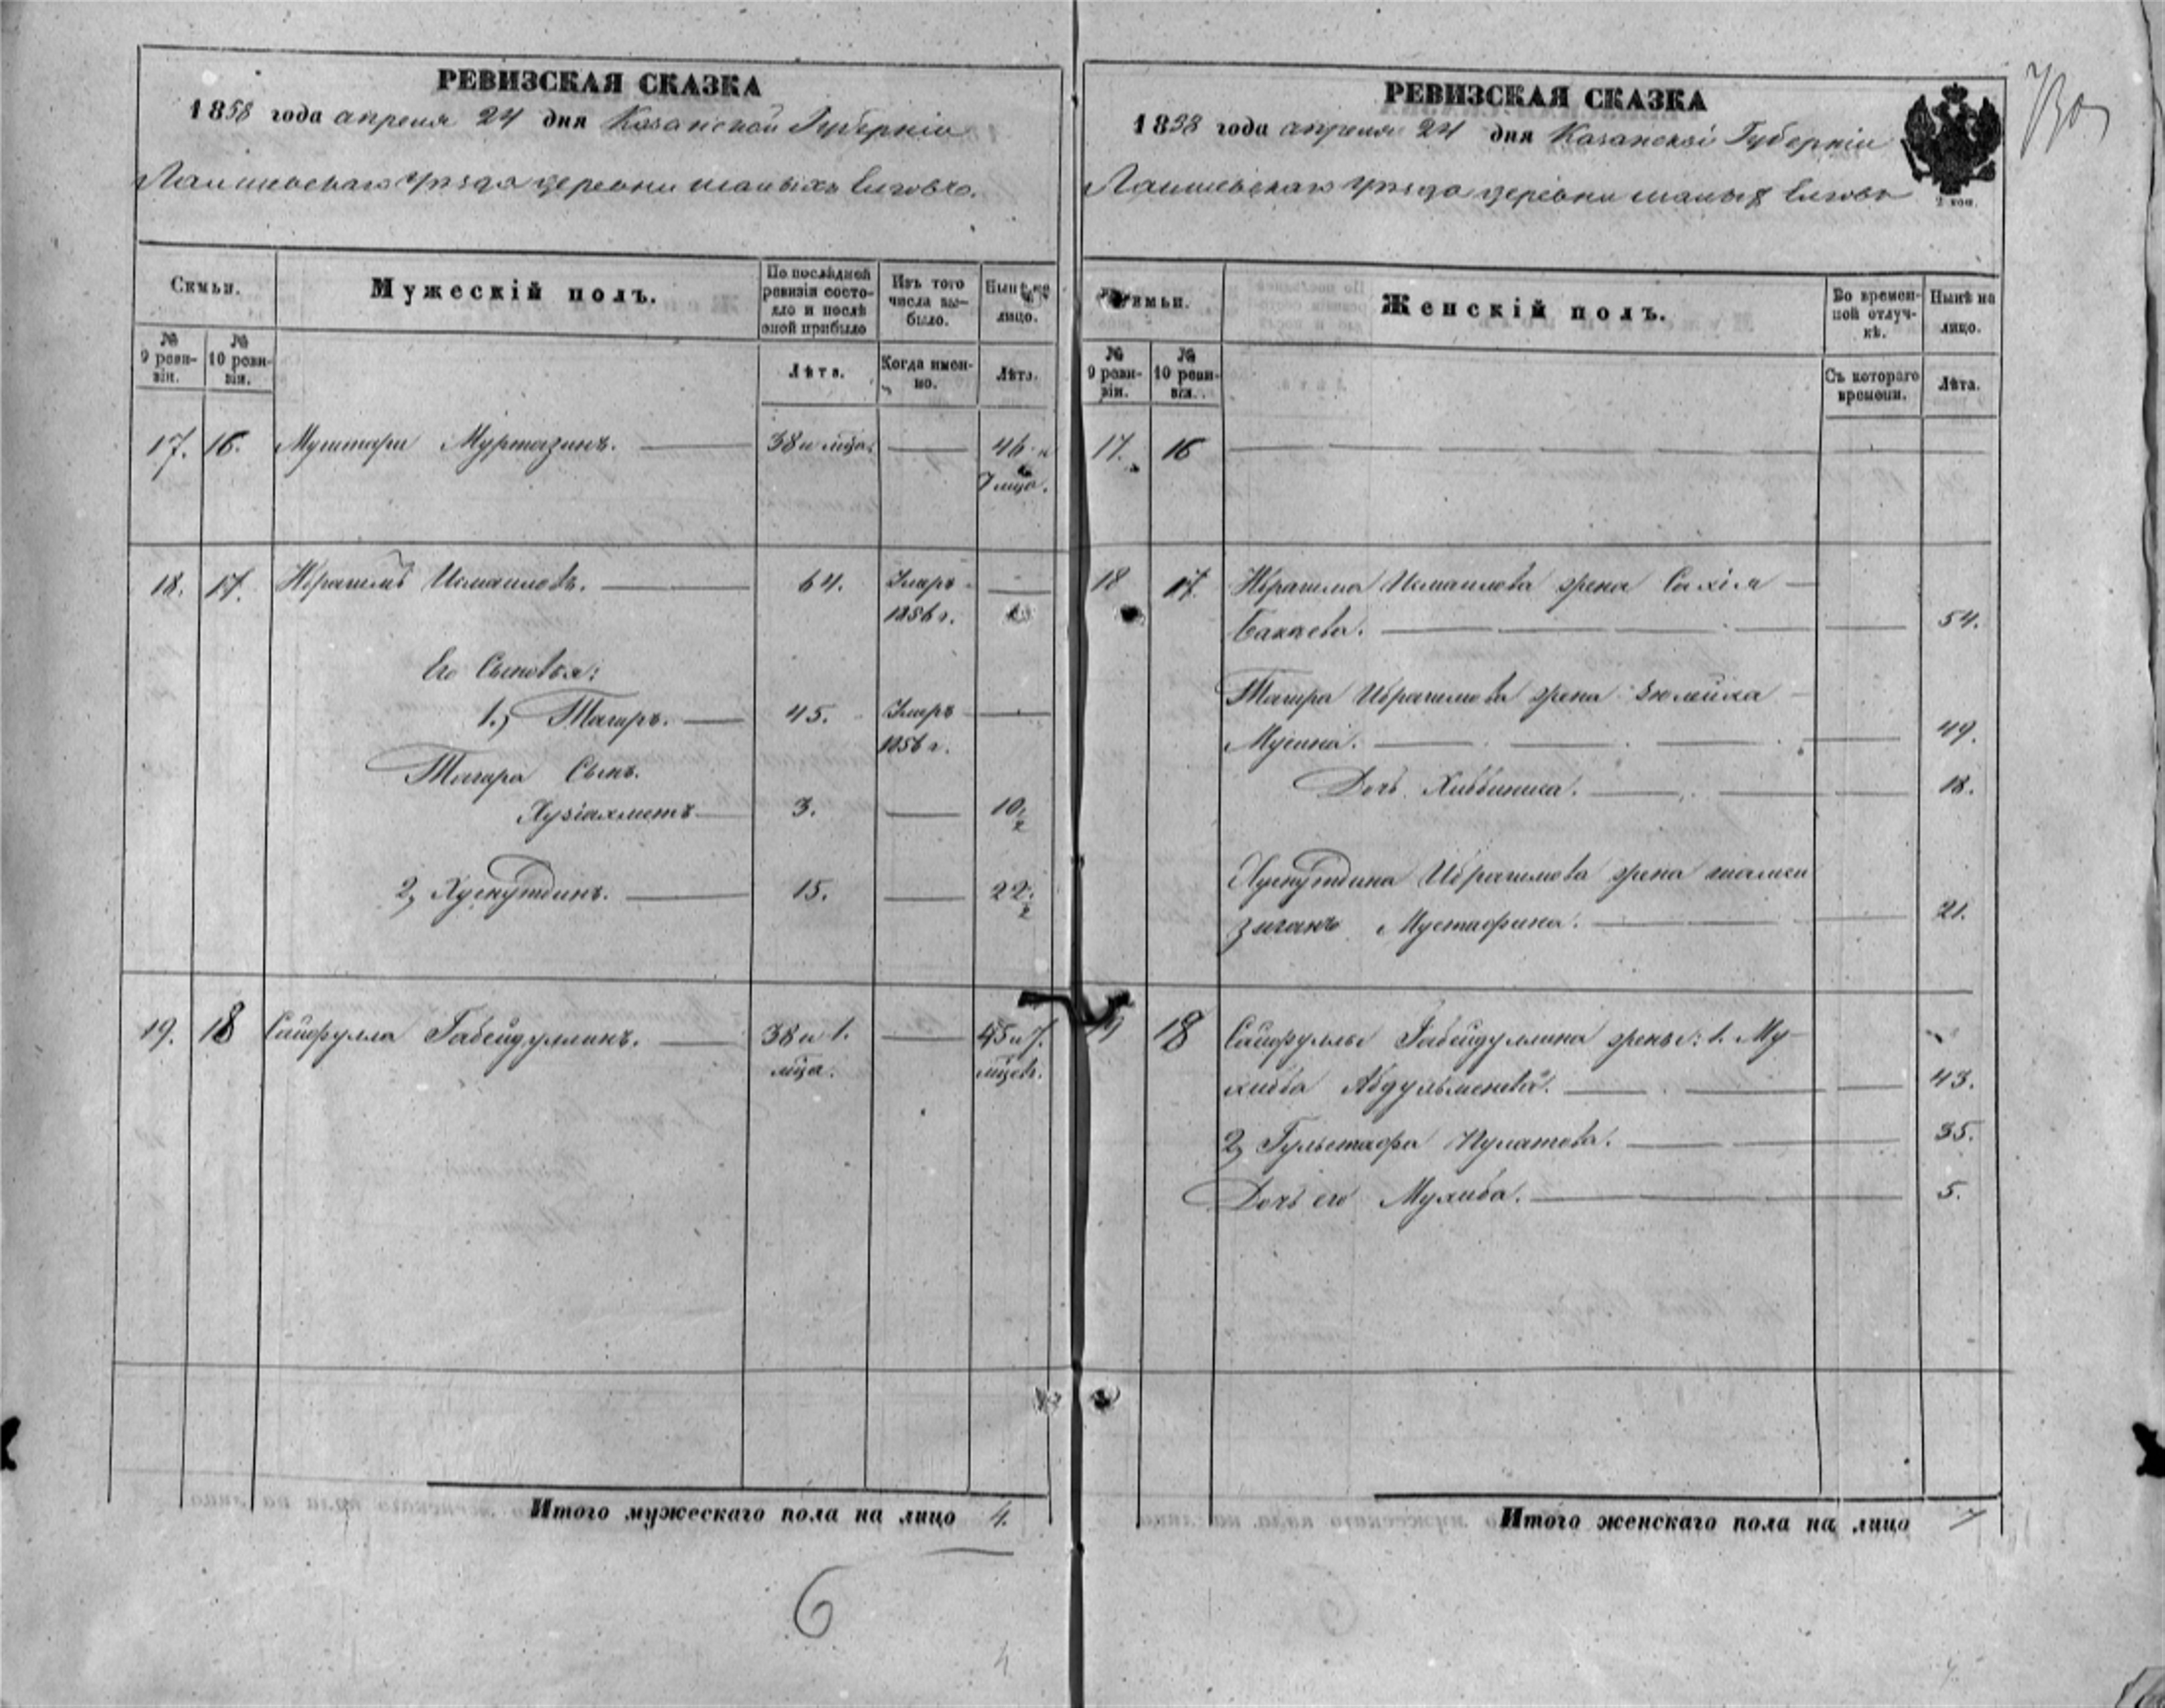 РЕВИЗСКАЯ СКАЗКА
1858 года апреля 24 дня Казанской Губерніи
Лаишевскаго уѣзда деревни малыхъ Елговъ.
Семьи.
Мужескій полъ.
По послѣдней ревизіи состояло и послѣ оной прибыло
Изъ того числа выбыло.
Нынѣ на лицо.
№ 9 ревизіи.
№ 10 ревизіи.
Лѣта.
Когда именно.
Лѣта.
17. 16. Муштари Муртазинъ. 38 и мѣца. 46 и
7 мѣца.
18. 17. Ибрагимъ Исмаиловъ. 64. Умеръ
1856 г.
Его Сыновья:
1., Тагиръ. 45. Умеръ
1856 г.
Тагира Сынъ.
Хузіахметъ 3. 10 1/2
2, Хуснутдинъ. 15. 22 1/2
19. 18 Сайфулла Габейдуллинъ. 38 и 1. 45 и 7.
мѣца. мѣцев.
Итого мужескаго пола на лицо 4.
6
РЕВИЗСКАЯ СКАЗКА
1858 года апреля 24 дня Казанской Губерніи
Лаишевскаго уѣзда деревни малых Елговъ
2 коп.
Семьи.
Женскій полъ.
Во временной отлучкѣ.
Нынѣ на лицо.
№ 9 ревизіи.
№ 10 ревизія.
Съ котораго времени.
Лѣта.
17. 16
18 17. Ибрагима Исмаилова жена Сахіля
Бакаева. 54.
Тагира Ибрагимова жена Зюлейха
Мусина. 49.
Дочь Хиббиниса. 18.
Хуснутдина Ибрагимова жена шамси
зиганъ Мустафина. 21.
19 18 Сайфуллы Габейдуллина жены: 1. Му-
хибба Абдульменева. 43.
2, Гульстафа Пулатова. 35.
Дочь его Мухиба. 5.
Итого женскаго пола на лицо 7